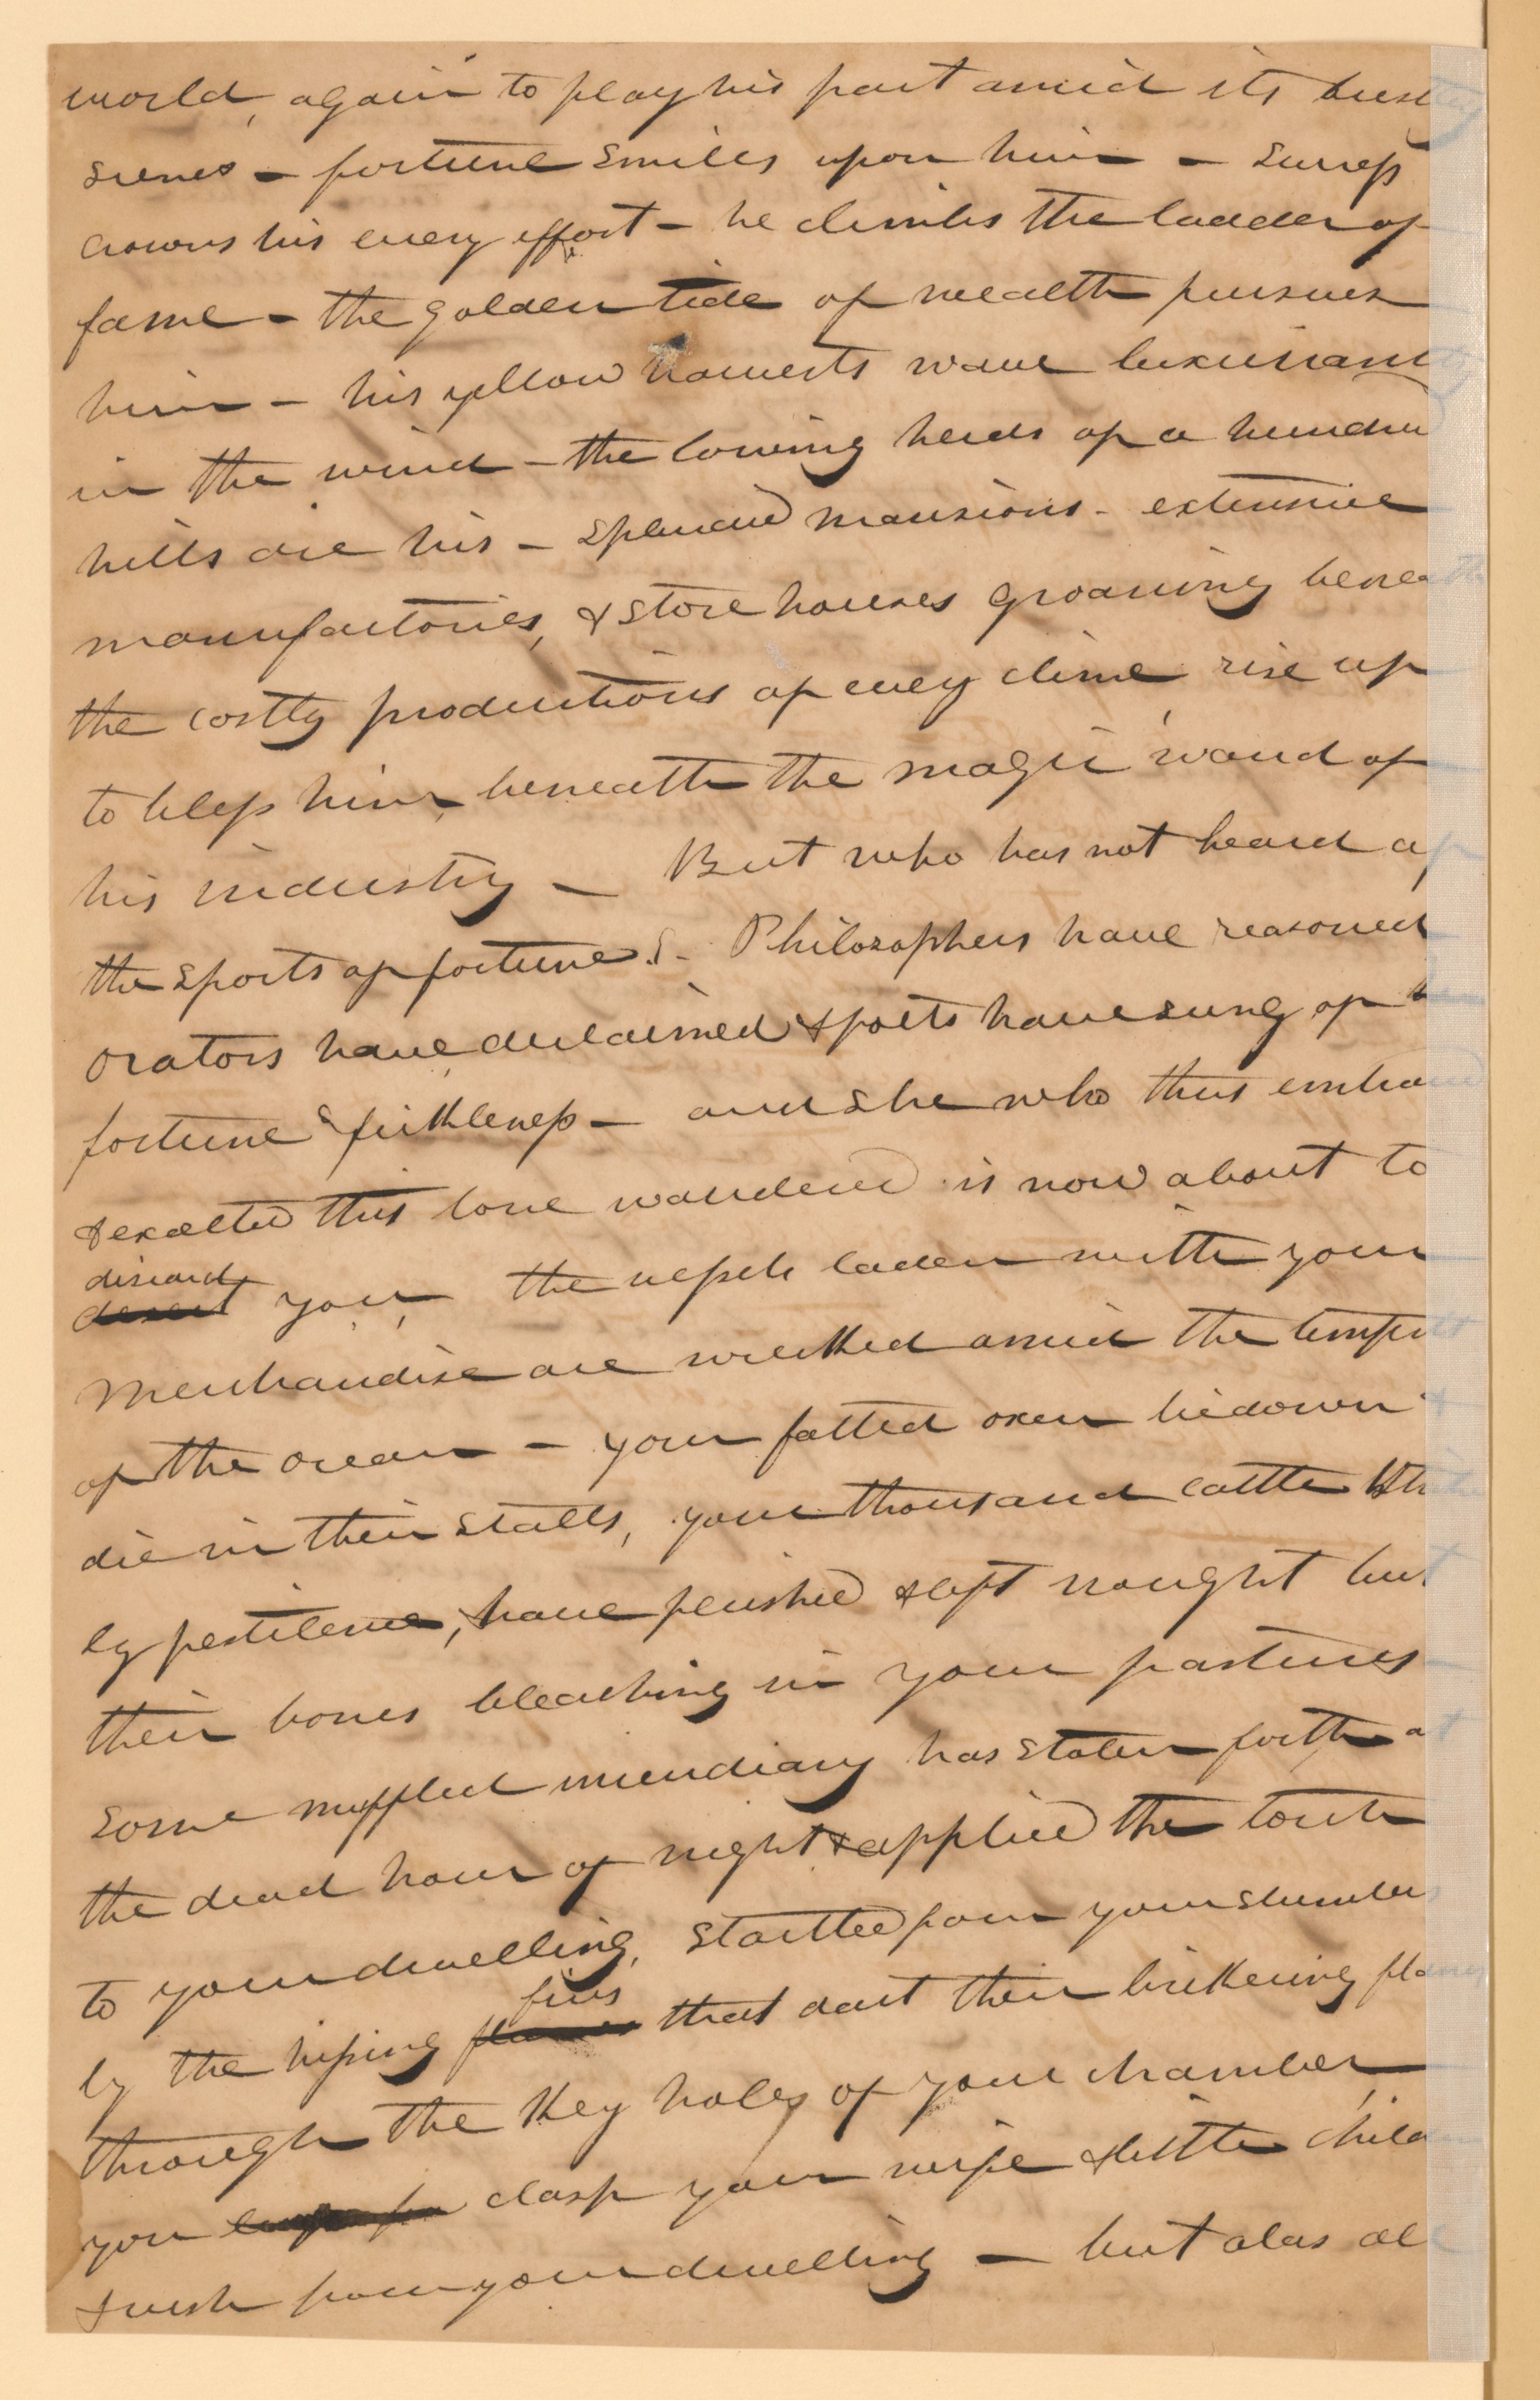 world, again to play his part amid its busy
scenes - fortune smiles upon him - success
crowns his every effort - he climbs the ladder of
fame - the golden tide of wealth pursues
him - his yellow harvests wave luxuriant
in the wind - the lowing herds of a hundred
hills are his - splendid mansions - extensive
manufactories, & store houses groaning beneath
the costly productions of every clime, rise up
to bless him, beneath the magic wand of
his industry - But who has not heard of
the sports of fortune - Philosophers have reasoned
orators have declaimed & poets have sung of
fortune's fickleness - and she who thus
& exalted this lone wanderer is now about to
discard
desert you, the vessels laden with your
merchandise are wrecked amid the tempest
of the ocean - your fatted oxen lie down &
die in their stalls, your thousand cattle
by pestilence, have perished & left nought but
their bones bleaching in your pastures
some muffled incendiary has stolen forth at
the dead hour of night & applied the torch
to your dwelling, startled from your slumbers
fires
by the hissing flames that dart their bickering
through the key holes of your chamber,
you clasp your wife & little
& rush from your dwelling - but alas all